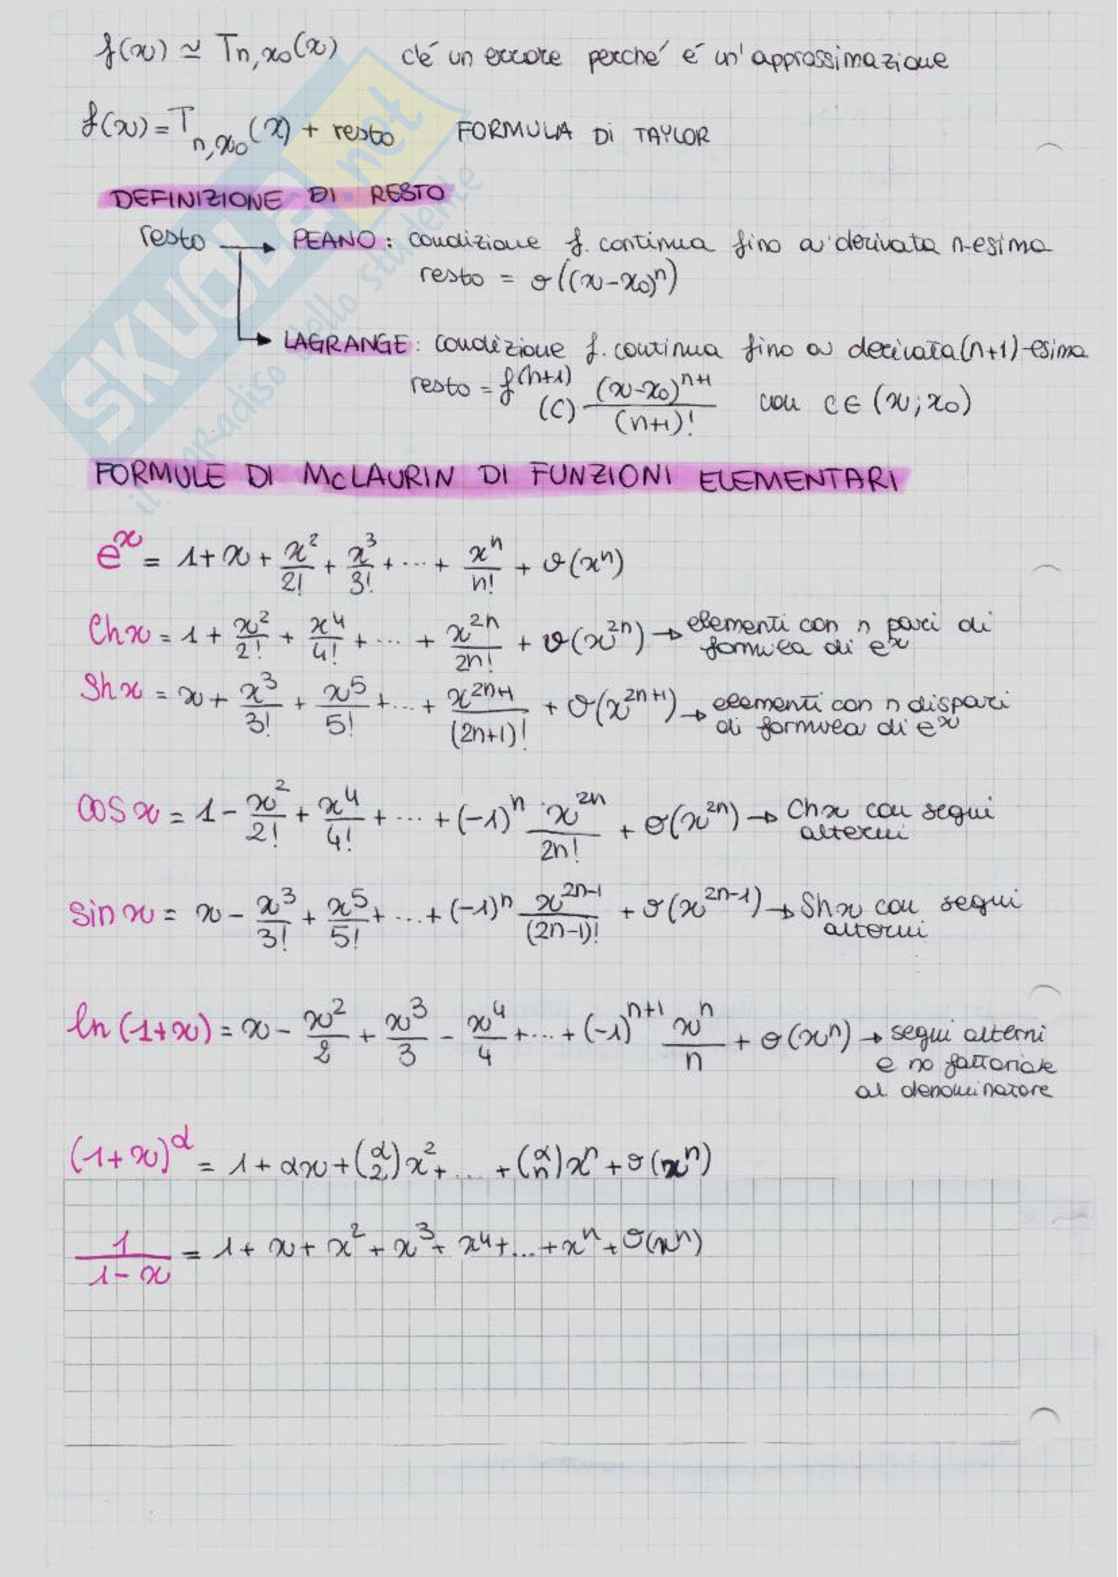 f(x) ≃ Tn,x₀(x) c'é un errore perché é un'approssimazione
f(x) = Tn,x₀(x) + resto FORMULA Di TAYLOR
DEFINIZIONE DI RESTO
resto → PEANO: condizione f. continua fino a derivata n-esima
resto = o((x-x₀)ⁿ)
LAGRANGE: condizione f. continua fino a derivata (n+1)-esima
resto = f⁽ⁿ⁺¹⁾(c) (x-x₀)ⁿ⁺¹/(n+1)! con c∈(x;x₀)
FORMULE DI McLAURIN DI FUNZIONI ELEMENTARI
eˣ = 1+x+x²/2!+x³/3!+...+xⁿ/n!+o(xⁿ)
Chx = 1+x²/2!+x⁴/4!+...+x²ⁿ/2n!+o(x²ⁿ) → elementi con n pari di
formula di eˣ
Shx = x+x³/3!+x⁵/5!+...+x²ⁿ⁺¹/(2n+1)!+o(x²ⁿ⁺¹) → elementi con n dispari
di formula di eˣ
cosx = 1-x²/2!+x⁴/4!+...+(-1)ⁿ x²ⁿ/2n!+o(x²ⁿ) → Chx con segni
alterni
sinx = x-x³/3!+x⁵/5!+...+(-1)ⁿ x²ⁿ⁻¹/(2n-1)!+o(x²ⁿ⁻¹) → Shx con segni
alterni
ln(1+x) = x-x²/2+x³/3-x⁴/4+...+(-1)ⁿ⁺¹ xⁿ/n+o(xⁿ) → segni alterni
e no fattoriale
al denominatore
(1+x)^α = 1+αx+(α 2)x²+...+(α n)xⁿ+o(xⁿ)
1/(1-x) = 1+x+x²+x³+x⁴+...+xⁿ+o(xⁿ)
SKUOLA.net
il paradiso dello studente